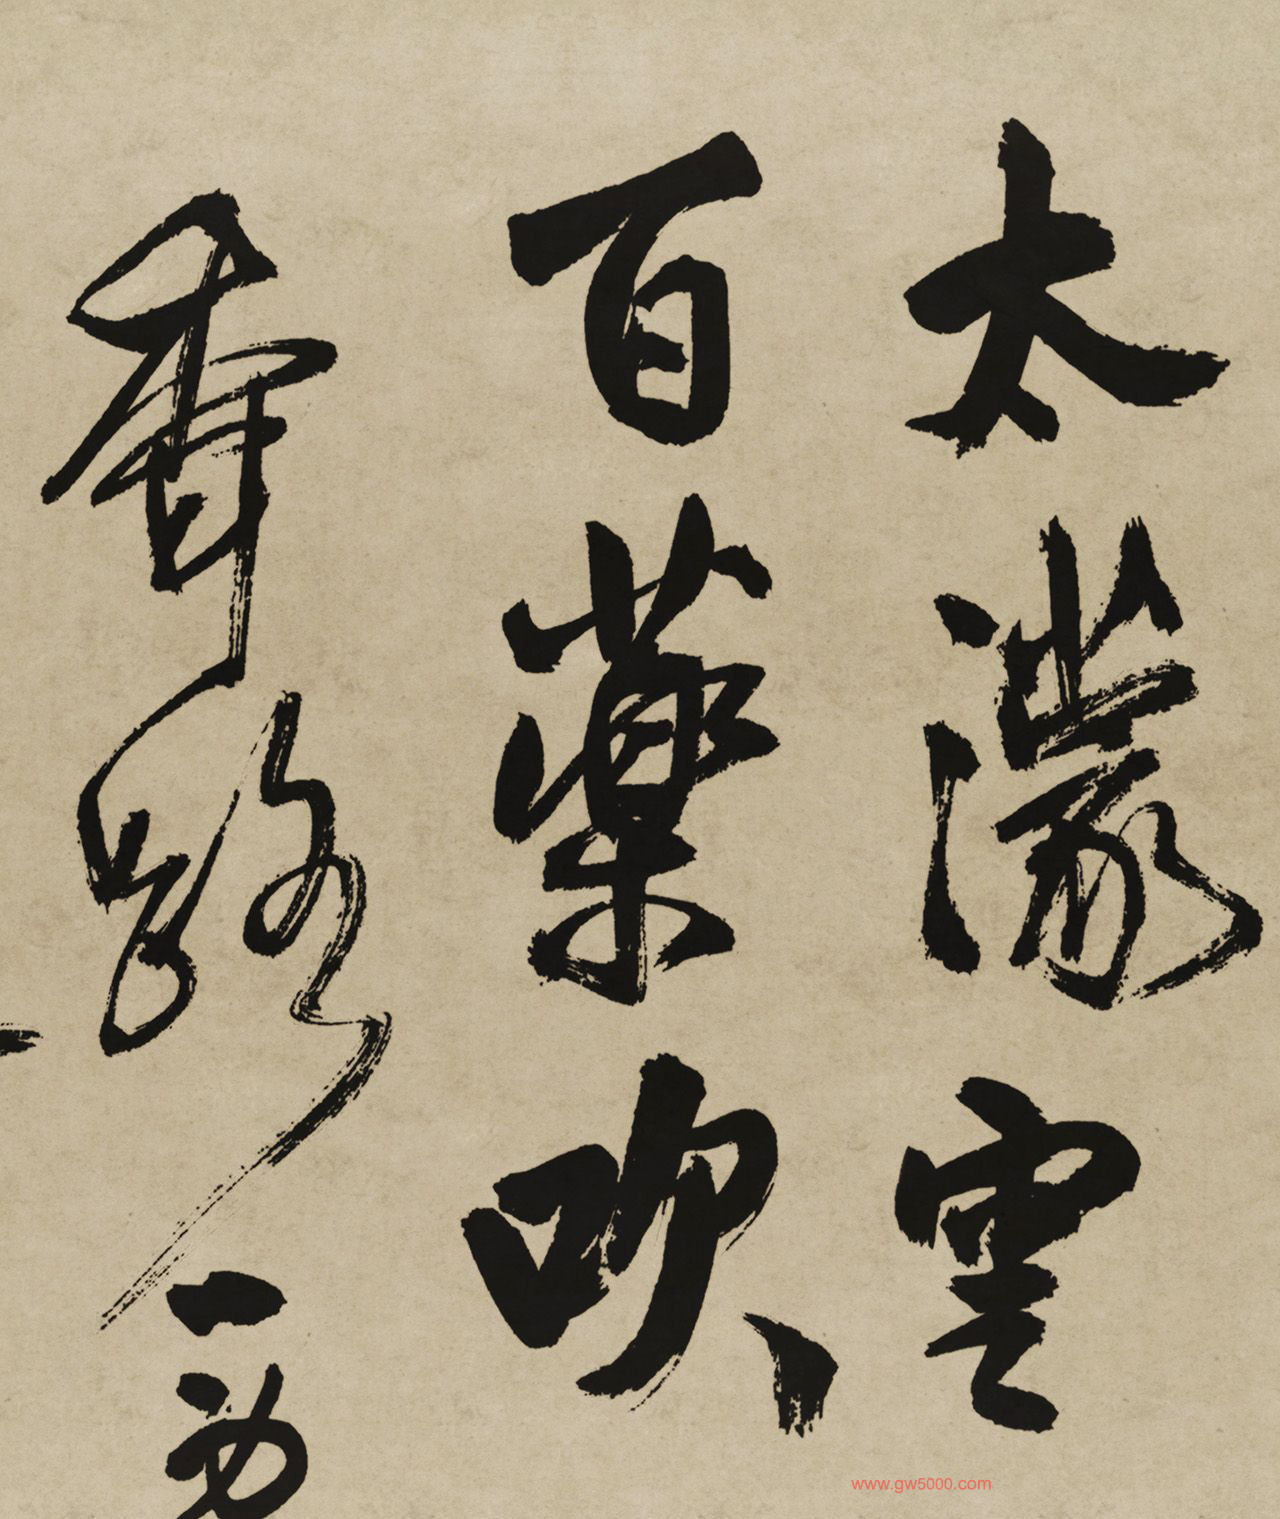 太濛雲
百藥吹
香路一
www.gw5000.com